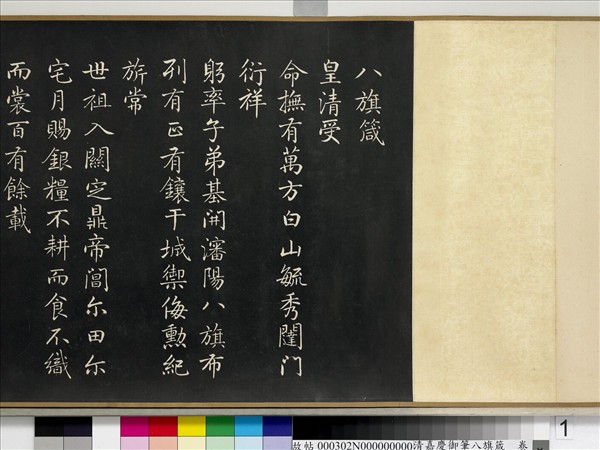 八旗箴
皇清受
命撫有萬方白山毓秀闥门
衍祥
躬率子弟基開瀋陽八旗布
列有正有鑲干城禦侮勳紀
旂常
世祖入關定鼎帝閭尔田尔
宅月賜銀糧不耕而食不織
而裳百有餘載
故帖 000302N000000000清嘉慶御筆八旗箴 卷
1